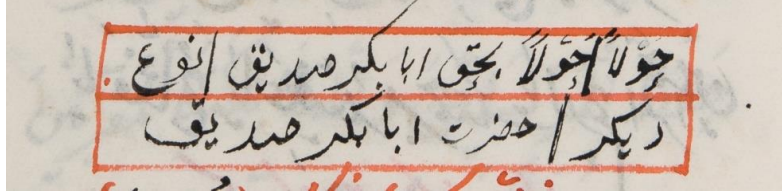 حَوْلاً حَوْلاً بحق ابابكر صديق نوع
ديكر حضرت ابابكر صديق